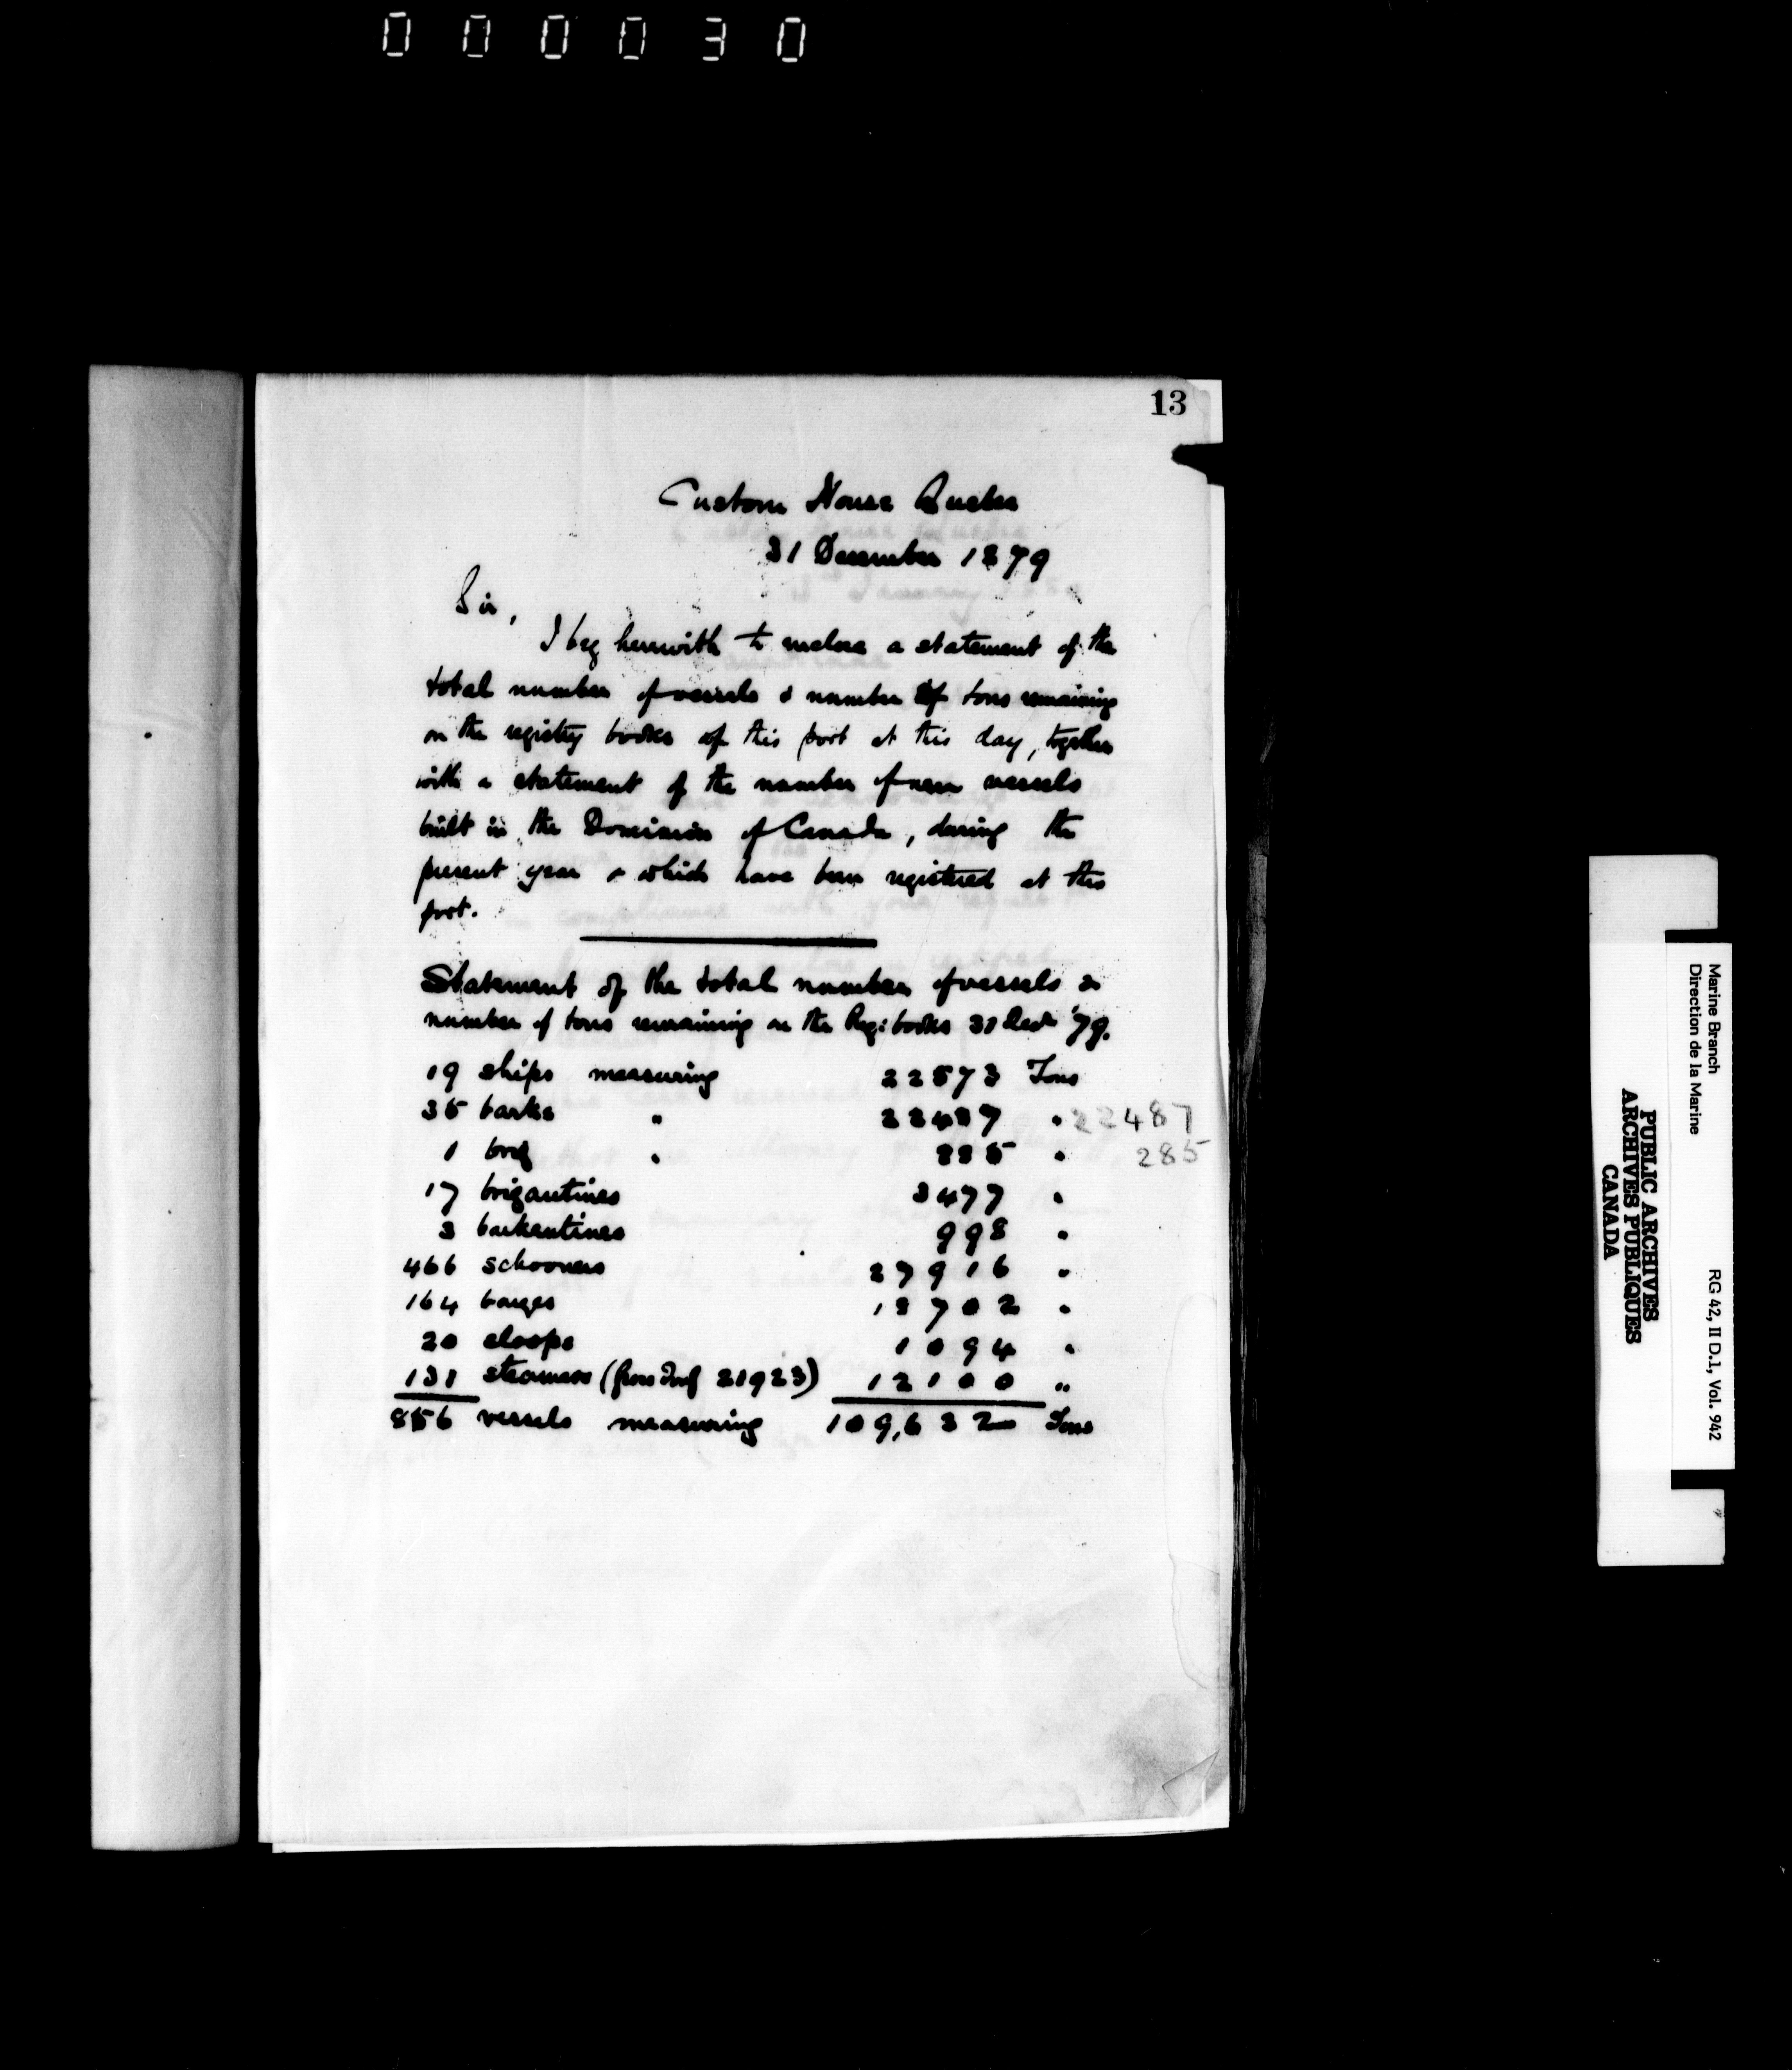 000030
13
Custom House Quebec
31 December 1879
Sir,
I beg herewith to enclose a statement of the
total number of vessels & number of tons remaining
on the registry books of this port at this day, together
with a statement of the number of new vessels
built in the Dominion of Canada, during the
present year & which have been registered at this
port.
Statement of the total number of vessels &
number of tons remaining on the Reg: books 31 Decr '79.
19 ships measuring 22573 Tons
35 barks " 22487 " 22487
1 brig " 285 " 285
17 brigantines 3477 "
3 barkentines 998 "
466 schooners 27916 "
164 barges 18702 "
20 sloops 1094 "
131 steamers (gross 21923) 12100 "
856 vessels measuring 109,632 Tons
Marine Branch
Direction de la Marine
RG 42, II D.1, Vol. 942
PUBLIC ARCHIVES
ARCHIVES PUBLIQUES
CANADA